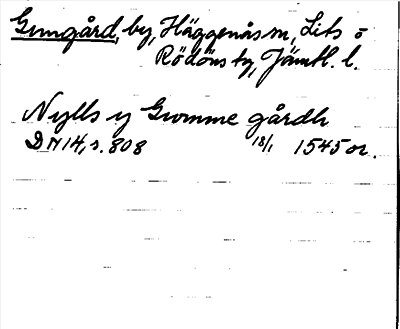 Gumgård, by, Häggenås sn, Lits o
Rödöns tg, Jämtl. l.
Nylls y Gumme gårdh
DN 14, s. 808 18/1 1545 or.